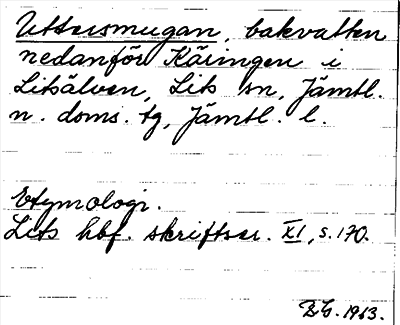 Uttusmugan, bakvatten
nedanför Käringen i
Litsälven, Lits sn, Jämtl.
n. doms. tg, Jämtl. l.
Etymologi.
Lits hbf. skriftser. XI, s. 170.
B.G. 1963.